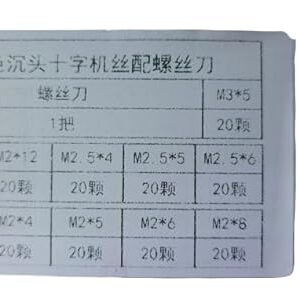 沉头十字机丝配螺丝刀
螺丝刀 M3*5
1把 20颗
M2*12 M2.5*4 M2.5*5 M2.5*6
20颗 20颗 20颗 20颗
M2*4 M2*5 M2*6 M2*8
20颗 20颗 20颗 20颗